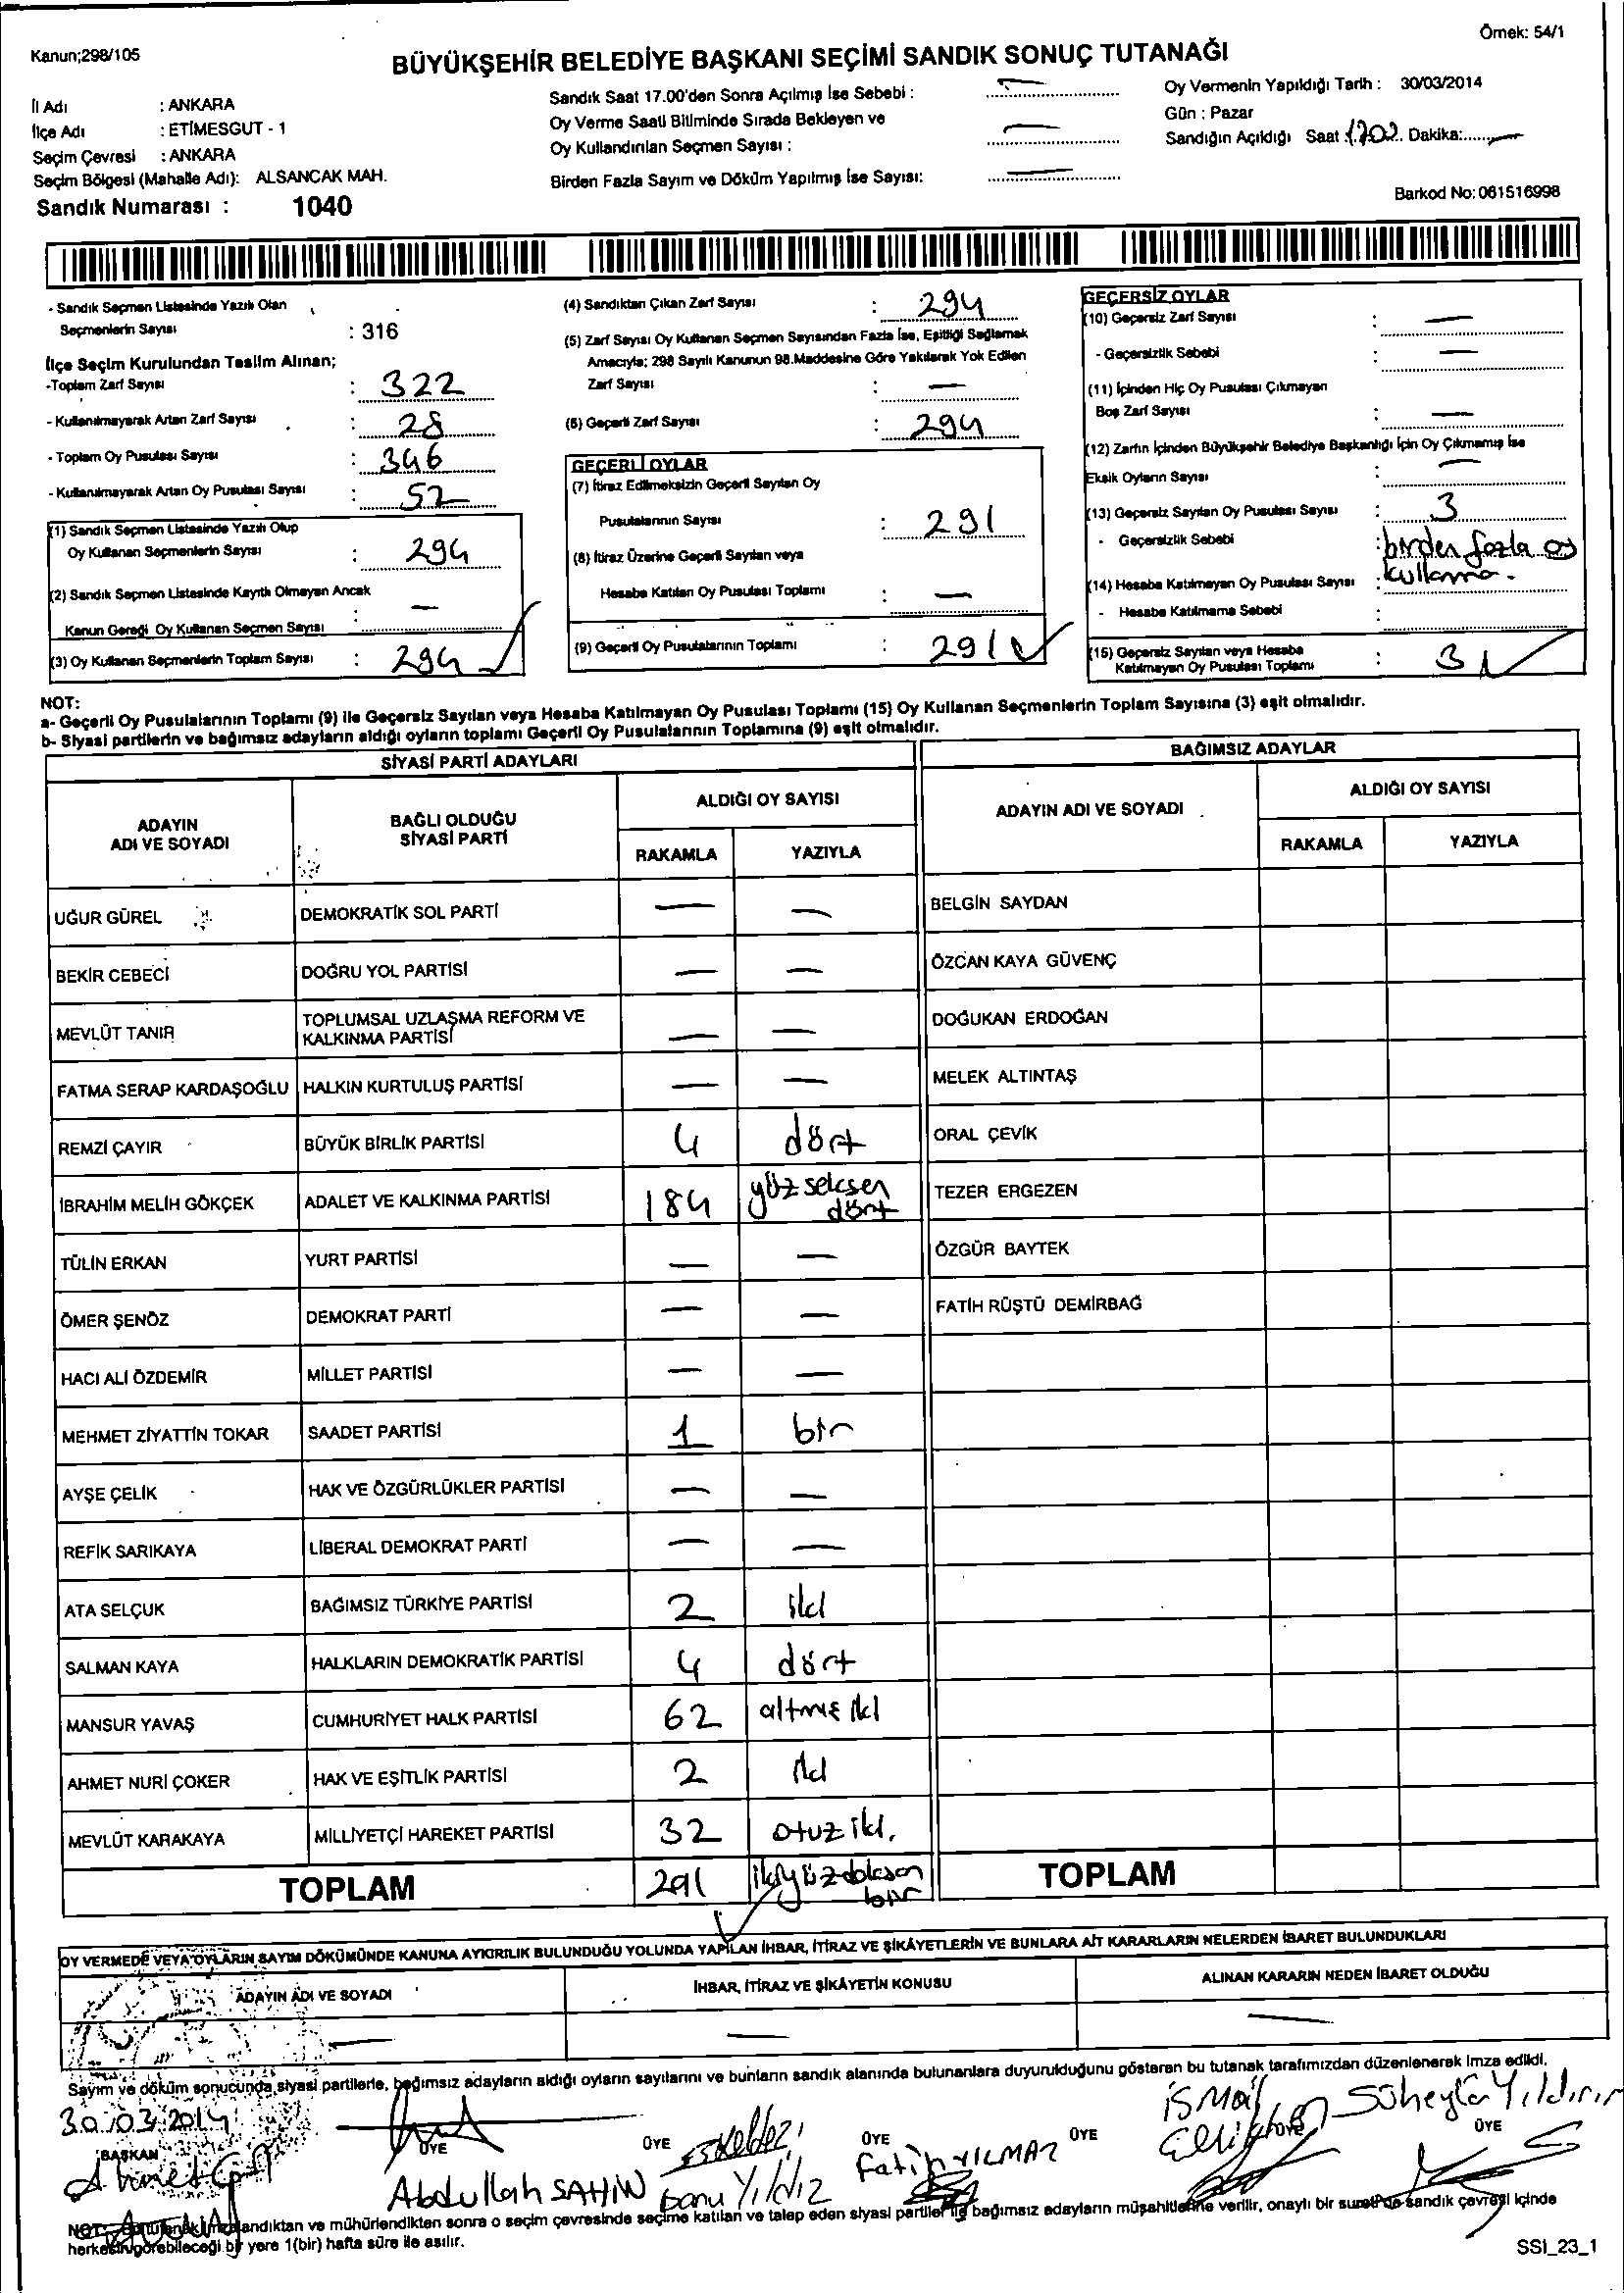 Kanun;298/105
Örnek: 54/1
BÜYÜKŞEHİR BELEDİYE BAŞKANI SEÇİMİ SANDIK SONUÇ TUTANAĞI
İl Adı : ANKARA
İlçe Adı : ETİMESGUT - 1
Seçim Çevresi : ANKARA
Seçim Bölgesi (Mahalle Adı): ALSANCAK MAH.
Sandık Numarası : 1040
Sandık Saat 17.00'den Sonra Açılmış İse Sebebi : —
Oy Verme Saati Bitiminde Sırada Bekleyen ve
Oy Kullandırılan Seçmen Sayısı : —
Birden Fazla Sayım ve Döküm Yapılmış İse Sayısı: —
Oy Vermenin Yapıldığı Tarih : 30/03/2014
Gün : Pazar
Sandığın Açıldığı Saat :1702. Dakika:......—
Barkod No: 061516998
- Sandık Seçmen Listesinde Yazılı Olan
Seçmenlerin Sayısı : 316
İlçe Seçim Kurulundan Teslim Alınan;
-Toplam Zarf Sayısı : 322
- Kullanılmayarak Artan Zarf Sayısı : 28
- Toplam Oy Pusulası Sayısı : 346
- Kullanılmayarak Artan Oy Pusulası Sayısı : 52
(1) Sandık Seçmen Listesinde Yazılı Olup
Oy Kullanan Seçmenlerin Sayısı : 294
(2) Sandık Seçmen Listesinde Kayıtlı Olmayan Ancak
Kanun Gereği Oy Kullanan Seçmen Sayısı : —
(3) Oy Kullanan Seçmenlerin Toplam Sayısı : 294
(4) Sandıktan Çıkan Zarf Sayısı : 294
(5) Zarf Sayısı Oy Kullanan Seçmen Sayısından Fazla İse, Eşitliği Sağlamak
Amacıyla; 298 Sayılı Kanunun 98.Maddesine Göre Yakılarak Yok Edilen
Zarf Sayısı : —
(6) Geçerli Zarf Sayısı : 294
GEÇERLİ OYLAR
(7) İtiraz Edilmeksizin Geçerli Sayılan Oy
Pusulalarının Sayısı : 291
(8) İtiraz Üzerine Geçerli Sayılan veya
Hesaba Katılan Oy Pusulası Toplamı : —
(9) Geçerli Oy Pusulalarının Toplamı : 291
GEÇERSİZ OYLAR
(10) Geçersiz Zarf Sayısı : —
- Geçersizlik Sebebi : —
(11) İçinden Hiç Oy Pusulası Çıkmayan
Boş Zarf Sayısı : —
(12) Zarfın İçinden Büyükşehir Belediye Başkanlığı İçin Oy Çıkmamış İse
Eksik Oyların Sayısı : —
(13) Geçersiz Sayılan Oy Pusulası Sayısı : 3
- Geçersizlik Sebebi : birden fazla oy
kullanma.
(14) Hesaba Katılmayan Oy Pusulası Sayısı :
- Hesaba Katılmama Sebebi :
(15) Geçersiz Sayılan veya Hesaba
Katılmayan Oy Pusulası Toplamı : 3
NOT:
a- Geçerli Oy Pusulalarının Toplamı (9) ile Geçersiz Sayılan veya Hesaba Katılmayan Oy Pusulası Toplamı (15) Oy Kullanan Seçmenlerin Toplam Sayısına (3) eşit olmalıdır.
b- Siyasi partilerin ve bağımsız adayların aldığı oyların toplamı Geçerli Oy Pusulalarının Toplamına (9) eşit olmalıdır.
SİYASİ PARTİ ADAYLARI
BAĞIMSIZ ADAYLAR
ADAYIN
ADI VE SOYADI
BAĞLI OLDUĞU
SİYASİ PARTİ
ALDIĞI OY SAYISI
RAKAMLA YAZIYLA
ADAYIN ADI VE SOYADI
ALDIĞI OY SAYISI
RAKAMLA YAZIYLA
UĞUR GÜREL DEMOKRATİK SOL PARTİ — — BELGİN SAYDAN
BEKİR CEBECİ DOĞRU YOL PARTİSİ — — ÖZCAN KAYA GÜVENÇ
MEVLÜT TANIR TOPLUMSAL UZLAŞMA REFORM VE
KALKINMA PARTİSİ — — DOĞUKAN ERDOĞAN
FATMA SERAP KARDAŞOĞLU HALKIN KURTULUŞ PARTİSİ — — MELEK ALTINTAŞ
REMZİ ÇAYIR BÜYÜK BİRLİK PARTİSİ 4 dört ORAL ÇEVİK
İBRAHİM MELİH GÖKÇEK ADALET VE KALKINMA PARTİSİ 184 yüz seksen dört TEZER ERGEZEN
TÜLİN ERKAN YURT PARTİSİ — — ÖZGÜR BAYTEK
ÖMER ŞENÖZ DEMOKRAT PARTİ — — FATİH RÜŞTÜ DEMİRBAĞ
HACI ALİ ÖZDEMİR MİLLET PARTİSİ — —
MEHMET ZİYATTİN TOKAR SAADET PARTİSİ 1 bir
AYŞE ÇELİK HAK VE ÖZGÜRLÜKLER PARTİSİ — —
REFİK SARIKAYA LİBERAL DEMOKRAT PARTİ — —
ATA SELÇUK BAĞIMSIZ TÜRKİYE PARTİSİ 2 iki
SALMAN KAYA HALKLARIN DEMOKRATİK PARTİSİ 4 dört
MANSUR YAVAŞ CUMHURİYET HALK PARTİSİ 62 altmış iki
AHMET NURİ ÇOKER HAK VE EŞİTLİK PARTİSİ 2 iki
MEVLÜT KARAKAYA MİLLİYETÇİ HAREKET PARTİSİ 32 otuz iki.
TOPLAM 291 ikiyüz doksan bir TOPLAM
OY VERMEDE VEYA OYLARIN SAYIM DÖKÜMÜNDE KANUNA AYKIRILIK BULUNDUĞU YOLUNDA YAPILAN İHBAR, İTİRAZ VE ŞİKÂYETLERİN VE BUNLARA AİT KARARLARIN NELERDEN İBARET BULUNDUKLARI
ADAYIN ADI VE SOYADI İHBAR, İTİRAZ VE ŞİKÂYETİN KONUSU ALINAN KARARIN NEDEN İBARET OLDUĞU
— — —
Sayım ve döküm sonucunda siyasi partilerle, bağımsız adayların aldığı oyların sayılarını ve bunların sandık alanında bulunanlara duyurulduğunu gösteren bu tutanak tarafımızdan düzenlenerek imza edildi.
30/03/2014
BAŞKAN ÜYE ÜYE ÜYE ÜYE ÜYE
Abdullah SAHİN
Banu Yıldız
Fatih YILMAZ
İSMAİL
Süheyla Yıldırım
NOT: Bu tutanak imzalandıktan ve mühürlendikten sonra o seçim çevresinde seçime katılan ve talep eden siyasi partiler ile bağımsız adayların müşahitlerine verilir, onaylı bir sureti de sandık çevresi içinde
herkesin görebileceği bir yere 1(bir) hafta süre ile asılır.
SSI_23_1